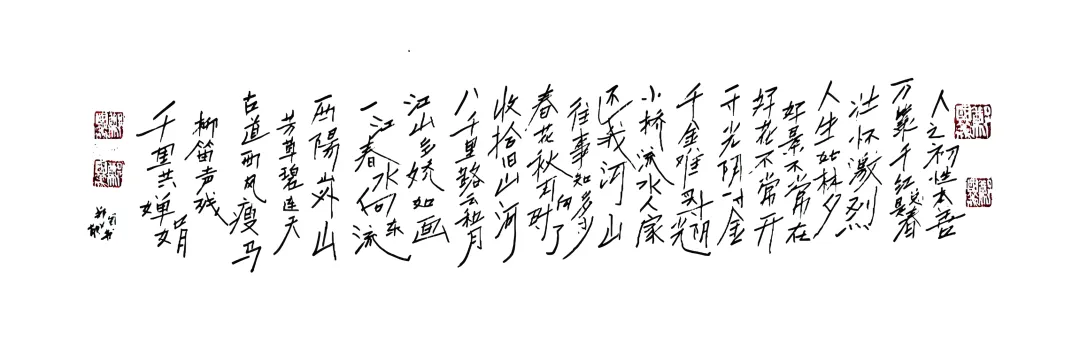 人之初性本善
万紫千红总是春
壮怀激烈
人生如梦
好景不常在
好花不常开
一寸光阴一寸金
千金难买光阴
小桥流水人家
还我河山
往事知多少
春花秋月何时了
收拾旧山河
八千里路云和月
江山多娇如画
一江春水向东流
陽山外山
芳草碧连天
古道西风瘦马
柳笛声残
千里共婵娟